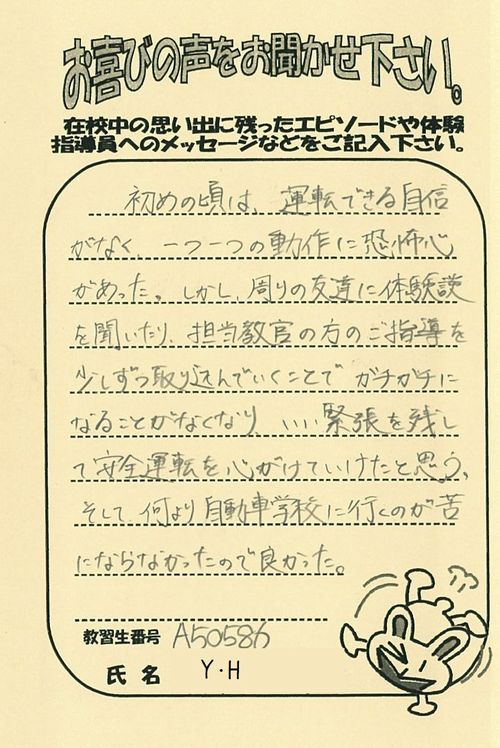 お喜びの声をお聞かせ下さい。
在校中の思い出に残ったエピソードや体験
指導員へのメッセージなどをご記入下さい。
初めの頃は、運転できる自信
がなく、一つ一つの動作に恐怖心
があった。しかし、周りの友達に体験談
を聞いたり、担当教官の方のご指導を
少しずつ取り込んでいくことでガチガチに
なることがなくなり、いい緊張を残し
て安全運転を心がけていけたと思う。
そして、何より自動車学校に行くのが苦
にならなかったので良かった。
教習生番号 A50586
氏名 Y・H